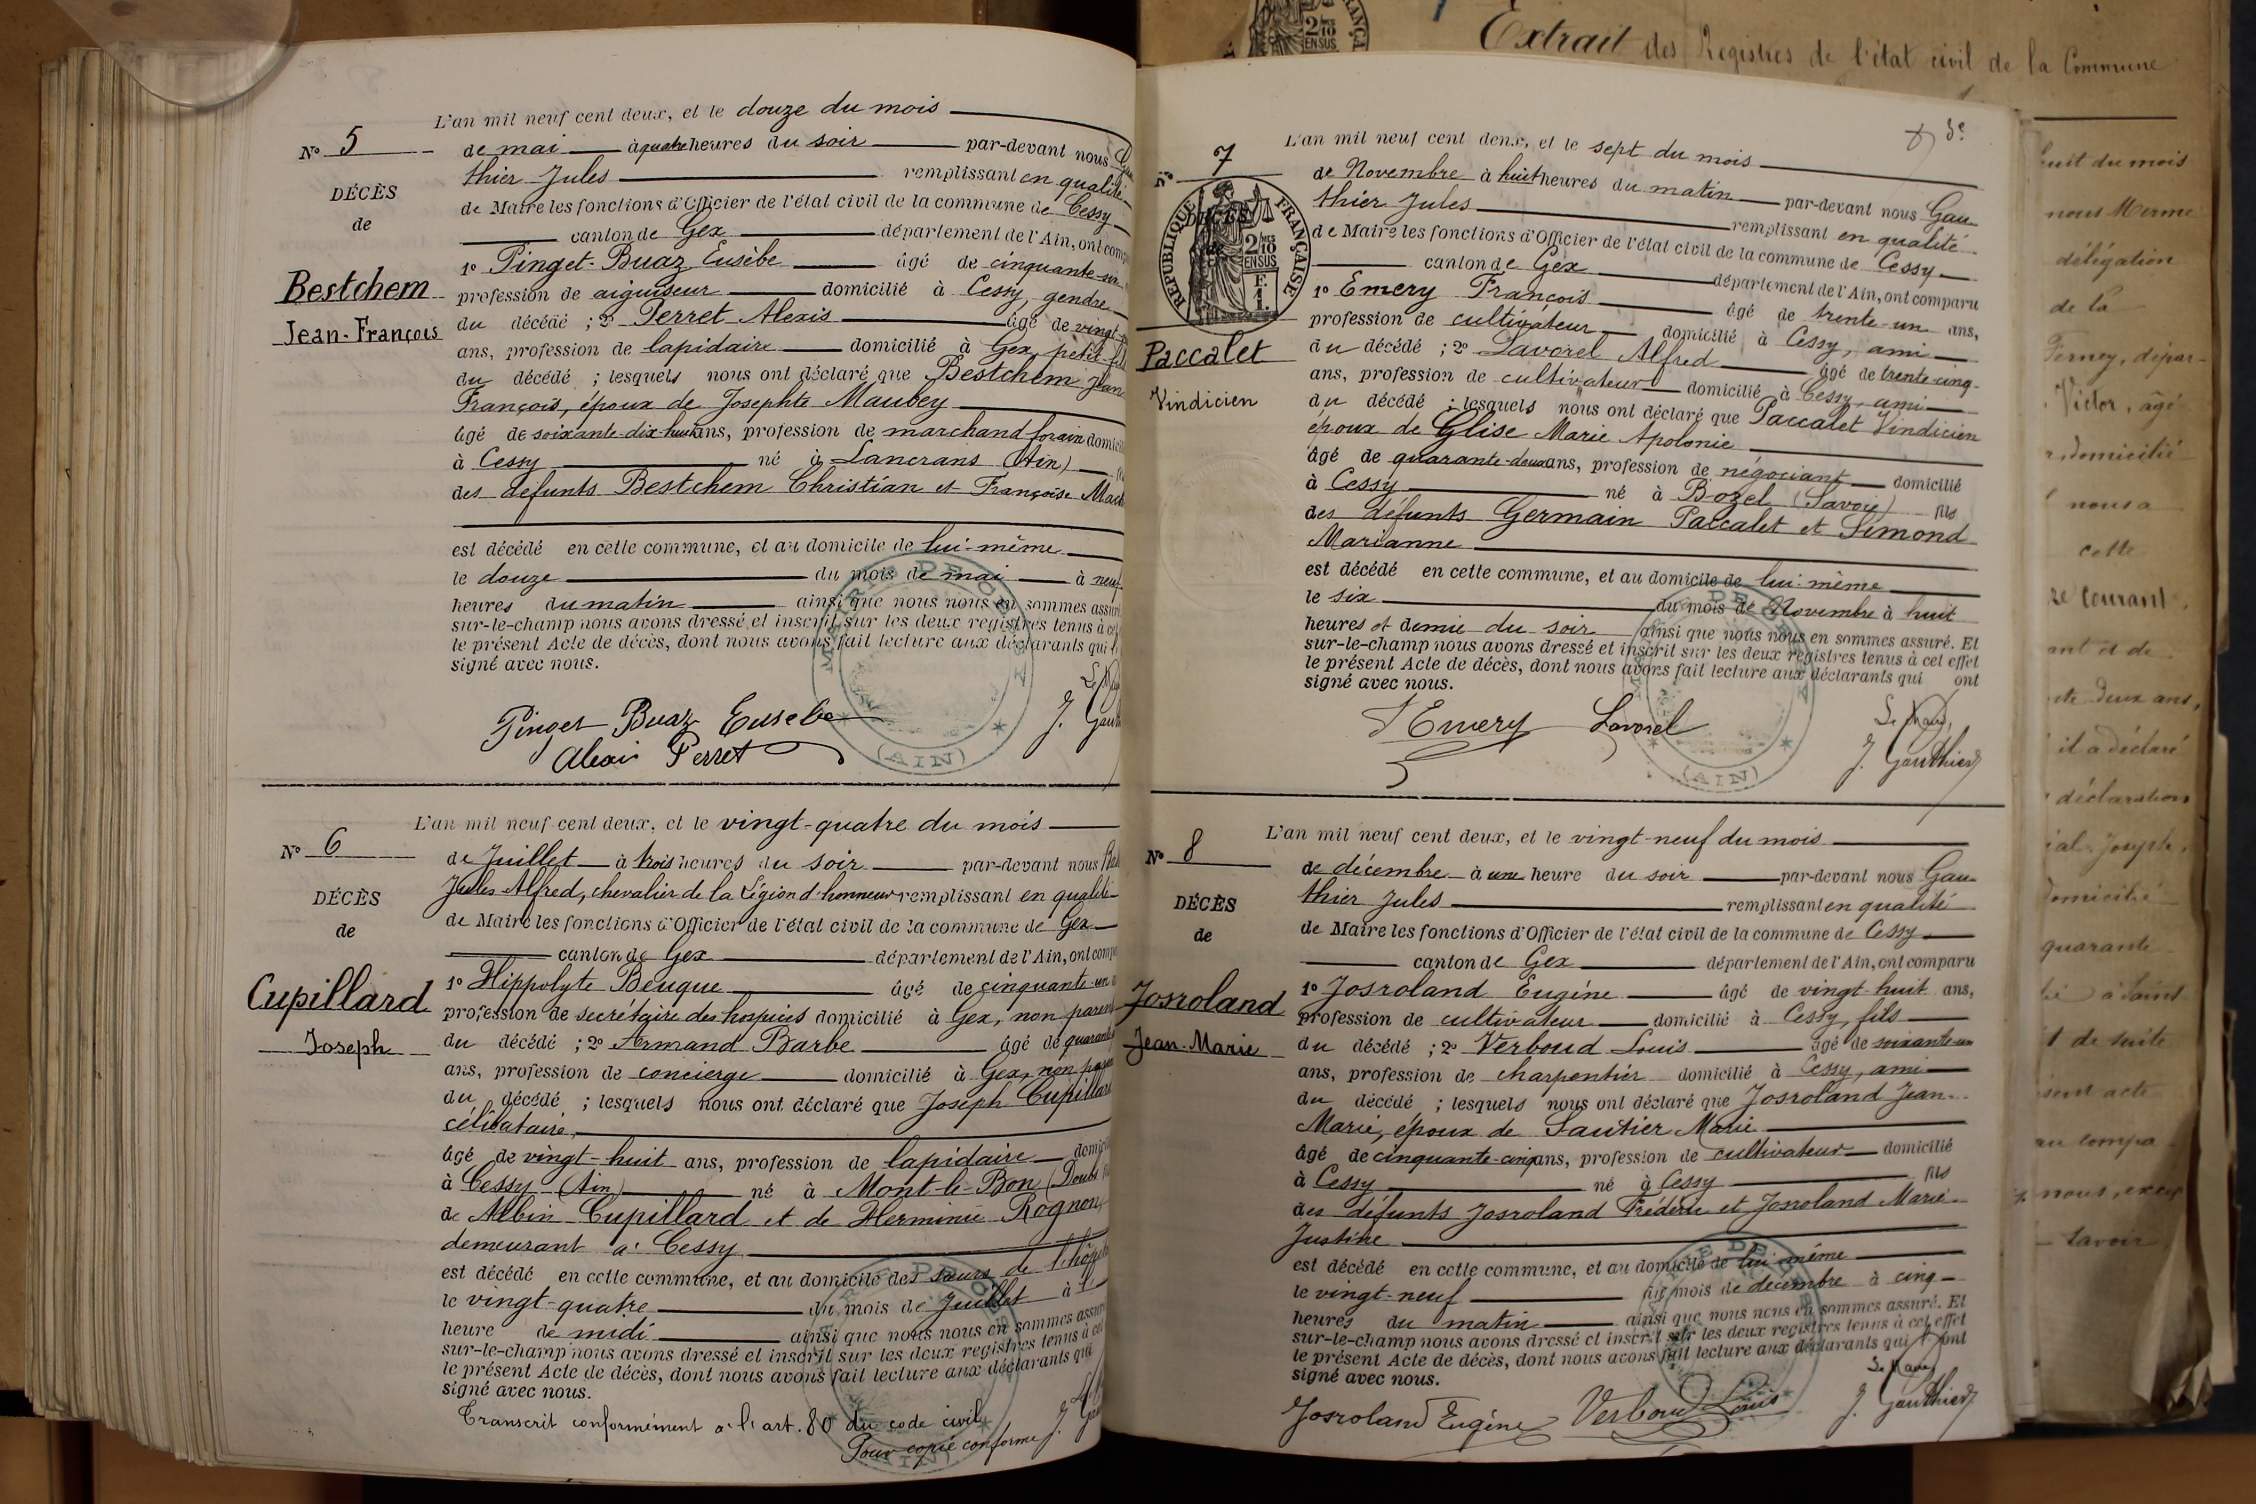 L'an mil neuf cent deux, et le douze du mois
N° 5
de mai à quatre heures du soir par-devant nous Gau
thier Jules remplissant en qualité
DÉCÈS
de Maire les fonctions d'Officier de l'état civil de la commune de Cessy
de
canton de Gex département de l'Ain, ont comp
1° Pinget-Buaz Eusèbe âgé de cinquante-six
Bestchem
profession de aiguiseur domicilié à Cessy, gendre
Jean-François
du décédé ; 2° Perret Alexis âgé de vingt
ans, profession de lapidaire domicilié à Gex, petit-fils
du décédé ; lesquels nous ont déclaré que Bestchem Jean
François, époux de Josephte Maubey
âgé de soixante-dix-huit ans, profession de marchand forain domici
à Cessy né à Lancrans (Ain)
des défunts Bestchem Christian et Françoise
est décédé en cette commune, et au domicile de lui-même
le douze du mois de mai à neuf
heures du matin ainsi que nous nous en sommes assuré
sur-le-champ nous avons dressé et inscrit sur les deux registres tenus à cet
le présent Acte de décès, dont nous avons fait lecture aux déclarants qui
signé avec nous.
Pinget Buaz Eusebe
Alexis Perret
J. Gauth
MAIRIE DE CESSY
(AIN)
L'an mil neuf cent deux, et le vingt-quatre du mois
N° 6
de Juillet à trois heures du soir par-devant nous
Jules-Alfred, chevalier de la Légion d'honneur remplissant en qualité
DÉCÈS
de Maire les fonctions d'Officier de l'état civil de la commune de Gex
de
canton de Gex département de l'Ain, ont comp
1° Hippolyte Beuque âgé de cinquante-un
Cupillard
profession de secrétaire des hospices domicilié à Gex, non parent
Joseph
du décédé ; 2° Armand Barbe âgé de quarante
ans, profession de concierge domicilié à Gex, non paren
du décédé ; lesquels nous ont déclaré que Joseph Cupillard
célibataire,
âgé de vingt-huit ans, profession de lapidaire domici
à Cessy (Ain) né à Mont-le-Bon (Doubs
de Albin Cupillard et de Herminie Rognon,
demeurant à Cessy
est décédé en cette commune, et au domicile des sœurs de l'hôpita
le vingt-quatre du mois de Juillet à
heure de midi ainsi que nous nous en sommes assuré
sur-le-champ nous avons dressé et inscrit sur les deux registres tenus à cet
le présent Acte de décès, dont nous avons fait lecture aux déclarants qui
signé avec nous.
Transcrit conformément à l'art. 80 du code civil
Pour copie conforme J. Gau
Extrait des Registres de l'état civil de la Commune
3e
L'an mil neuf cent deux, et le sept du mois
N° 7
de Novembre à huit heures du matin par-devant nous Gau
thier Jules remplissant en qualité
RÉPUBLIQUE FRANÇAISE
DÉCÈS
de
2/10 EN SUS
F. 1.
de Maire les fonctions d'Officier de l'état civil de la commune de Cessy
canton de Gex département de l'Ain, ont comparu
1° Emery François âgé de trente-un ans,
profession de cultivateur domicilié à Cessy, ami
Paccalet
Vindicien
du décédé ; 2° Lavorel Alfred âgé de trente-cinq
ans, profession de cultivateur domicilié à Cessy, ami
du décédé ; lesquels nous ont déclaré que Paccalet Vindicien
époux de Glise Marie Apolonie
âgé de quarante-deux ans, profession de négociant domicilié
à Cessy né à Bozel (Savoie) fils
des défunts Germain Paccalet et Simond
Marianne
est décédé en cette commune, et au domicile de lui-même
le six du mois de Novembre à huit
heures et demie du soir ainsi que nous nous en sommes assuré. Et
sur-le-champ nous avons dressé et inscrit sur les deux registres tenus à cet effet
le présent Acte de décès, dont nous avons fait lecture aux déclarants qui ont
signé avec nous.
Emery Lavorel
Le Maire,
J. Gauthier
(AIN)
L'an mil neuf cent deux, et le vingt-neuf du mois
N° 8
de décembre à une heure du soir par-devant nous Gau
thier Jules remplissant en qualité
DÉCÈS
de Maire les fonctions d'Officier de l'état civil de la commune de Cessy
de
canton de Gex département de l'Ain, ont comparu
1° Josroland Eugène âgé de vingt-huit ans,
Josroland
profession de cultivateur domicilié à Cessy, fils
Jean-Marie
du décédé ; 2° Verboud Louis âgé de soixante-un
ans, profession de charpentier domicilié à Cessy, ami
du décédé ; lesquels nous ont déclaré que Josroland Jean-
Marie, époux de Sautier Marie
âgé de cinquante-cinq ans, profession de cultivateur domicilié
à Cessy né à Cessy fils
des défunts Josroland Frédéric et Josroland Marie-
Justine
est décédé en cette commune, et au domicile de lui-même
le vingt-neuf du mois de décembre à cinq
heures du matin ainsi que nous nous en sommes assuré. Et
sur-le-champ nous avons dressé et inscrit sur les deux registres tenus à cet effet
le présent Acte de décès, dont nous avons fait lecture aux déclarants qui ont
signé avec nous.
Le Maire
Josroland Eugène Verboud Louis J. Gauthier
huit du mois
nous
délégation
de la
Ferney, dépar-
Victor, âgé
domicilié
nous a
cette
courant
ant et de
deux ans,
il a déclaré
déclaration
Joseph,
domicilié
quarante
à Saint
de suite
sent acte
au compa
nous,
Savoir